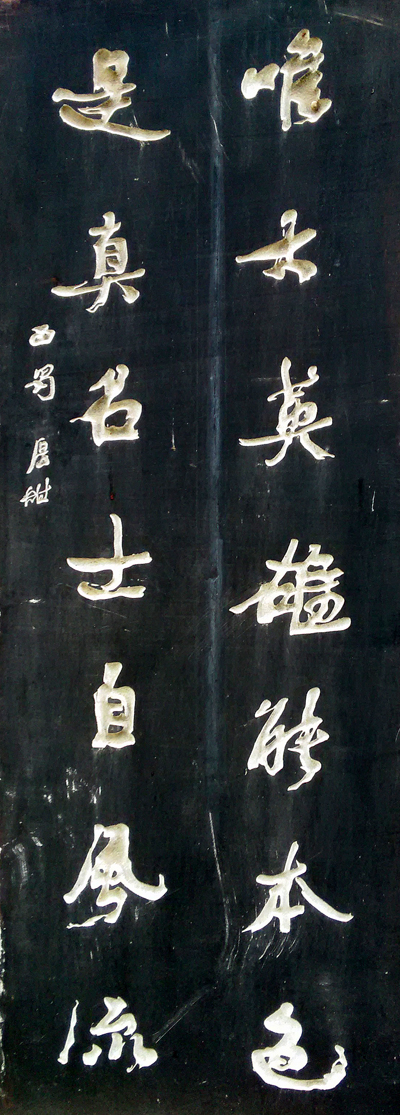 唯大英雄能本色
是真名士自风流
西蜀